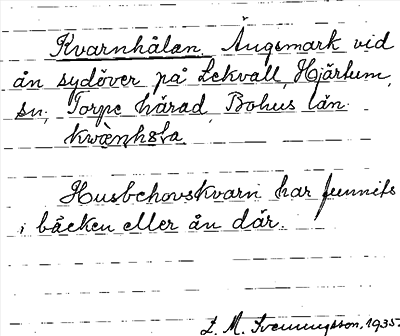 Kvarnhålan Ängsmark vid
ån sydöver på Lekvall, Hjärtum,
sn, Torpe härad, Bohus län.
Husbehovskvarn har funnits
i bäcken eller ån där.
L. M. Svenungsson, 1935.